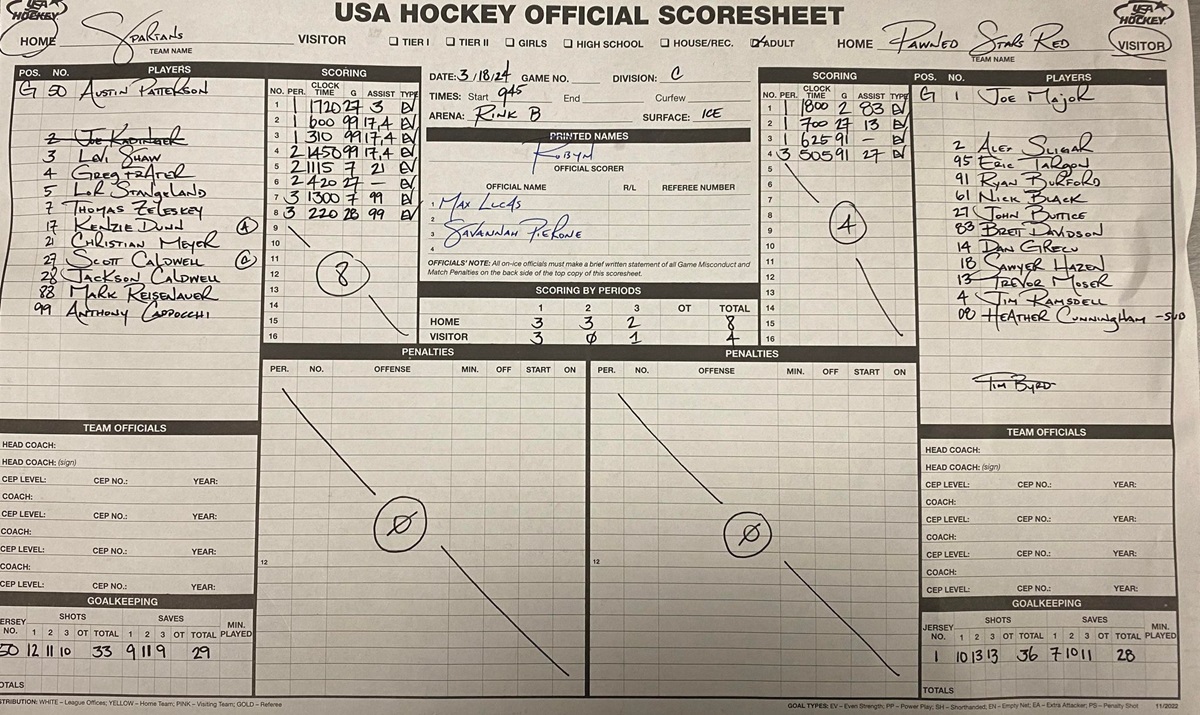 USA HOCKEY
USA HOCKEY OFFICIAL SCORESHEET
USA HOCKEY
HOME SPARTANS VISITOR ☐ TIER I ☐ TIER II ☐ GIRLS ☐ HIGH SCHOOL ☐ HOUSE/REC. ☑ ADULT HOME PAWNED STARS RED VISITOR
TEAM NAME
TEAM NAME
POS. NO. PLAYERS
G 50 AUSTIN PATTERSON
3 LEVI SHAW
4 GREG PRATER
5 LOR STANGELAND
7 THOMAS ZELESKEY
17 KENZIE DUNN A
21 CHRISTIAN MEYER
27 SCOTT CALDWELL a
28 JACKSON CALDWELL
88 MARK REISENAUER
99 ANTHONY CAPPOCCHI
SCORING
NO. PER. CLOCK TIME G ASSIST TYPE
1 1 1720 27 3 EV
2 1 600 99 17,4 EV
3 1 310 99 17,4 EV
4 2 1450 99 17,4 EV
5 2 1115 7 21 EV
6 2 420 27 — EV
7 3 1300 7 99 EV
8 3 220 28 99 EV
9
10
11
12
13
14
15
16
8
DATE: 3/18/24 GAME NO. DIVISION: C
TIMES: Start 945 End Curfew
ARENA: RINK B SURFACE: ICE
PRINTED NAMES
ROBYN
OFFICIAL SCORER
OFFICIAL NAME R/L REFEREE NUMBER
1 MAX LUCAS
2
3 SAVANNAH PIERONE
4
OFFICIALS' NOTE: All on-ice officials must make a brief written statement of all Game Misconduct and
Match Penalties on the back side of the top copy of this scoresheet.
SCORING BY PERIODS
1 2 3 OT TOTAL
HOME 3 3 2 8
VISITOR 3 Ø 1 4
SCORING
NO. PER. CLOCK TIME G ASSIST TYPE
1 1 1800 2 83 EV
2 1 700 27 13 EV
3 1 625 91 — EV
4 3 505 91 27 EV
5
6
7
8
9
10
11
12
13
14
15
16
4
POS. NO. PLAYERS
G 1 JOE MAJOR
2 ALEX SLIGAR
95 ERIC TARGON
91 RYAN BURFORD
61 NICK BLACK
27 JOHN BUTTICE
83 BRETT DAVIDSON
14 DAN GRECU
18 SAWYER HAZEN
13 TREVOR MOSER
4 JIM RAMSDELL
00 HEATHER CUNNINGHAM -SUB
TIM BYRD
PENALTIES
PER. NO. OFFENSE MIN. OFF START ON
Ø
12
PENALTIES
PER. NO. OFFENSE MIN. OFF START ON
Ø
12
TEAM OFFICIALS
HEAD COACH:
HEAD COACH: (sign)
CEP LEVEL: CEP NO.: YEAR:
COACH:
CEP LEVEL: CEP NO.: YEAR:
COACH:
CEP LEVEL: CEP NO.: YEAR:
COACH:
CEP LEVEL: CEP NO.: YEAR:
GOALKEEPING
JERSEY NO. SHOTS 1 2 3 OT TOTAL SAVES 1 2 3 OT TOTAL MIN. PLAYED
50 12 11 10 33 9 11 9 29
TOTALS
TEAM OFFICIALS
HEAD COACH:
HEAD COACH: (sign)
CEP LEVEL: CEP NO.: YEAR:
COACH:
CEP LEVEL: CEP NO.: YEAR:
COACH:
CEP LEVEL: CEP NO.: YEAR:
COACH:
CEP LEVEL: CEP NO.: YEAR:
GOALKEEPING
JERSEY NO. SHOTS 1 2 3 OT TOTAL SAVES 1 2 3 OT TOTAL MIN. PLAYED
1 10 13 13 36 7 10 11 28
TOTALS
DISTRIBUTION: WHITE – League Offices; YELLOW – Home Team; PINK – Visiting Team; GOLD – Referee
GOAL TYPES: EV – Even Strength; PP – Power Play; SH – Shorthanded; EN – Empty Net; EA – Extra Attacker; PS – Penalty Shot 11/2022